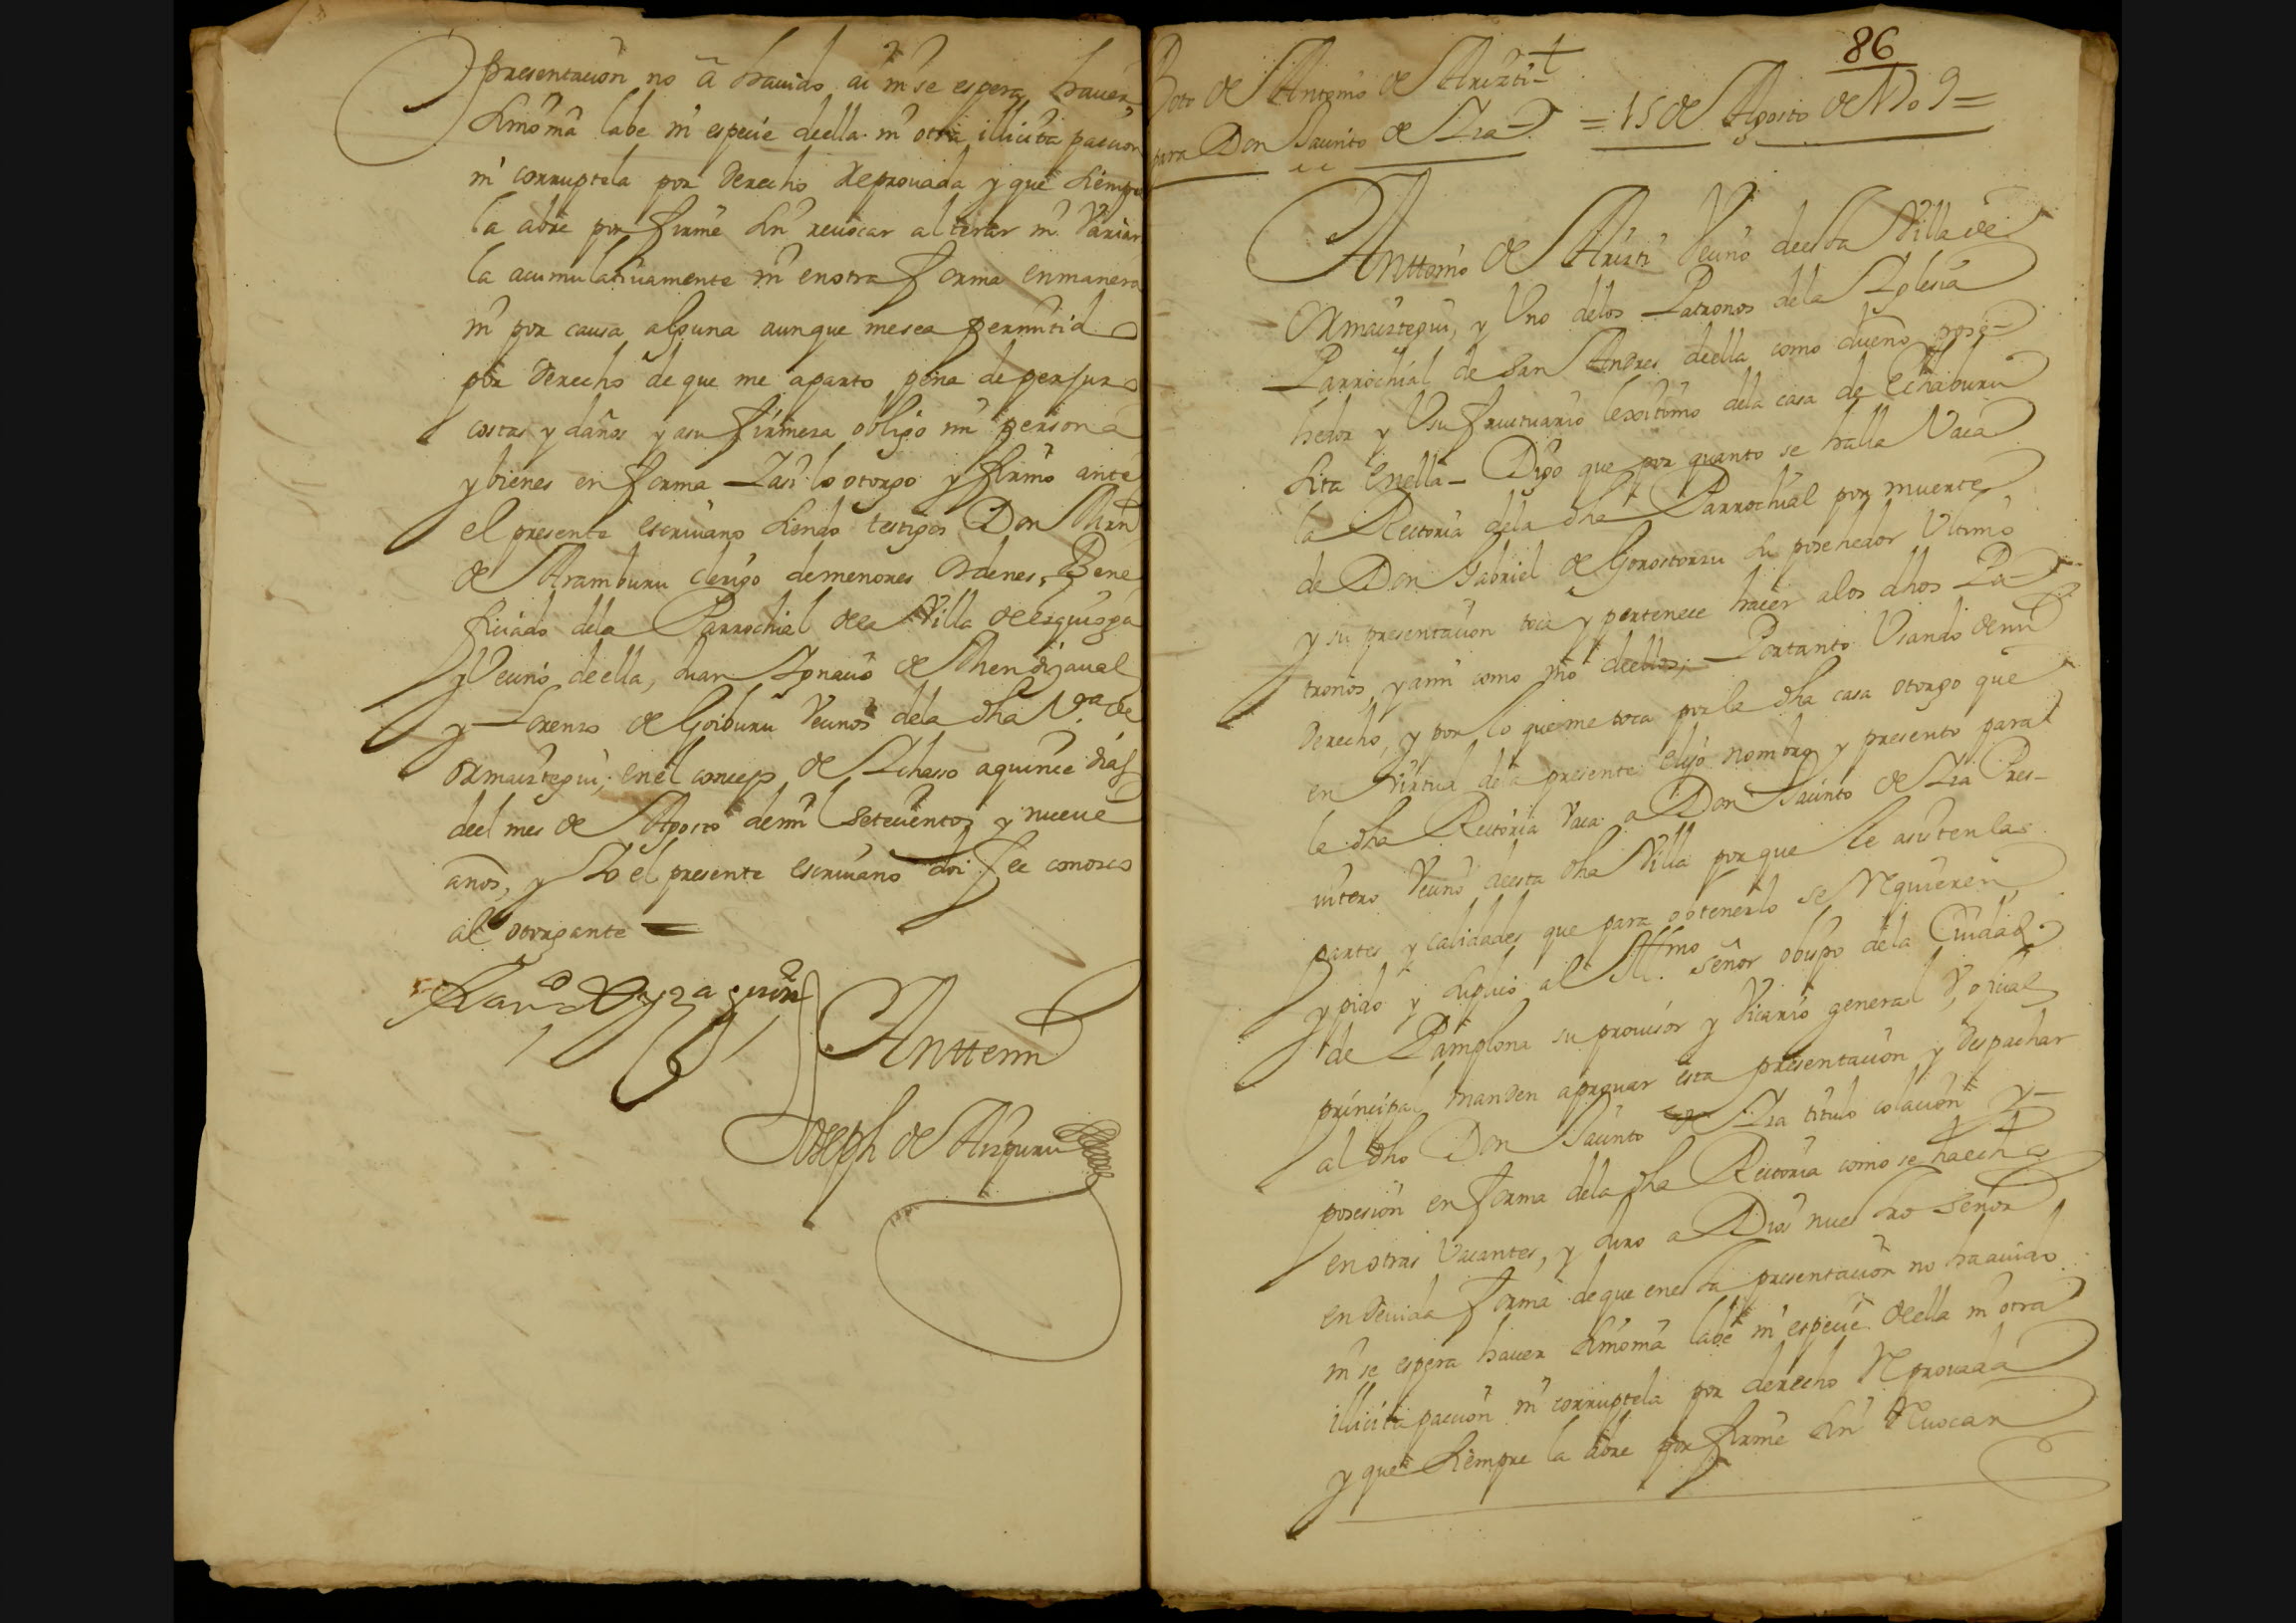 presentacion no â hauido ai ni se espera hauer
simonia labe ni especie deella ni otra illicita paccion
ni corruptela por derecho reprouada y que siempre
la abre por firme sin reuocar alterar ni Variar
la acumulatiuamente ni enotra forma enmanera
ni por causa alguna aunque mesea permitido
por derecho de que me aparto pena de perjuro
costas y daños y asu firmeza obligo mi persona
y bienes en forma Iasi lo otorgo y firmo ante
el presente escriuano siendo testigos Don
de Aramburu clerigo demenores ordenes, Bene
ficiado dela Parrochial dela Villa deezquioga
y Vecino deella, Juan Ignacio de Mendizaual
y Lorenzo de Goiburu Vecinos dela dha Va de
ormaiztegui, enel concejo de Ichaso aquince dias
deel mes de Agosto demil setecientos y nueue
anos, y Io el presente escriuano doi fee conozco
al otorgante
Anttemi
Joseph de Aizpuru
86
Boto de Antonio de Arizti
para Don Jacinto de Iza = 15 de Agosto de 1709 =
Anttonio de Arizti Vecino deesta Villa de
Ormaiztegui, y Uno delos Patronos dela Iglesia
Parrochial de San Andres deella como dueño pose-
hedor y Usufructuario lexitimo dela casa de Echaburu
sita enella - Digo que por quanto se halla Vaca
la Rectoria dela dha Parrochial por muerte
de Don Gabriel de Gorostorzu su posehedor Ultimo
y su presentacion toca y pertenece hacer alos dhos Pa-
tronos, y ami como Vno deellos; Portanto Usando demi
derecho, y por lo que me toca por la dha casa otorgo que
en Virtud dela presente elijo nombro y presento para
la dha Rectoria Vaca a Don Jacinto de Iza Pres-
uitero Vecino deesta dha Villa por que le asisten las
partes y calidades que para obtenerlo se requieren
y pido y suplico al Illmo señor obispo dela Ciudad
de Pamplona su prouisor y Vicario general Y, oficial
principal manden aprouar esta presentacion y despachar
al dho Don Jacinto de Iza titulo colacion y
posesion en forma dela dha Rectoria como se ha echo
en otras Vacantes, y Juro a Dios nuestro señor
en deuida forma de que enesta presentacion no ha auido
ni se espera hauer simonia labe ni especie deella ni otra
illicita paccion ni corruptela por derecho reprouada
y que siempre la abre por firme sin reuocar